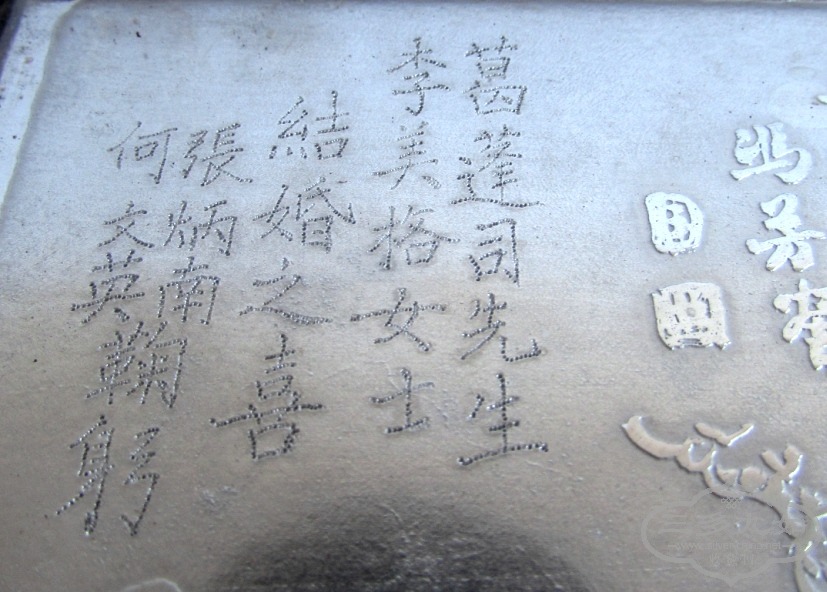 葛蓬司先生
李美格女士
結婚之喜
張炳南
何文英鞠躬